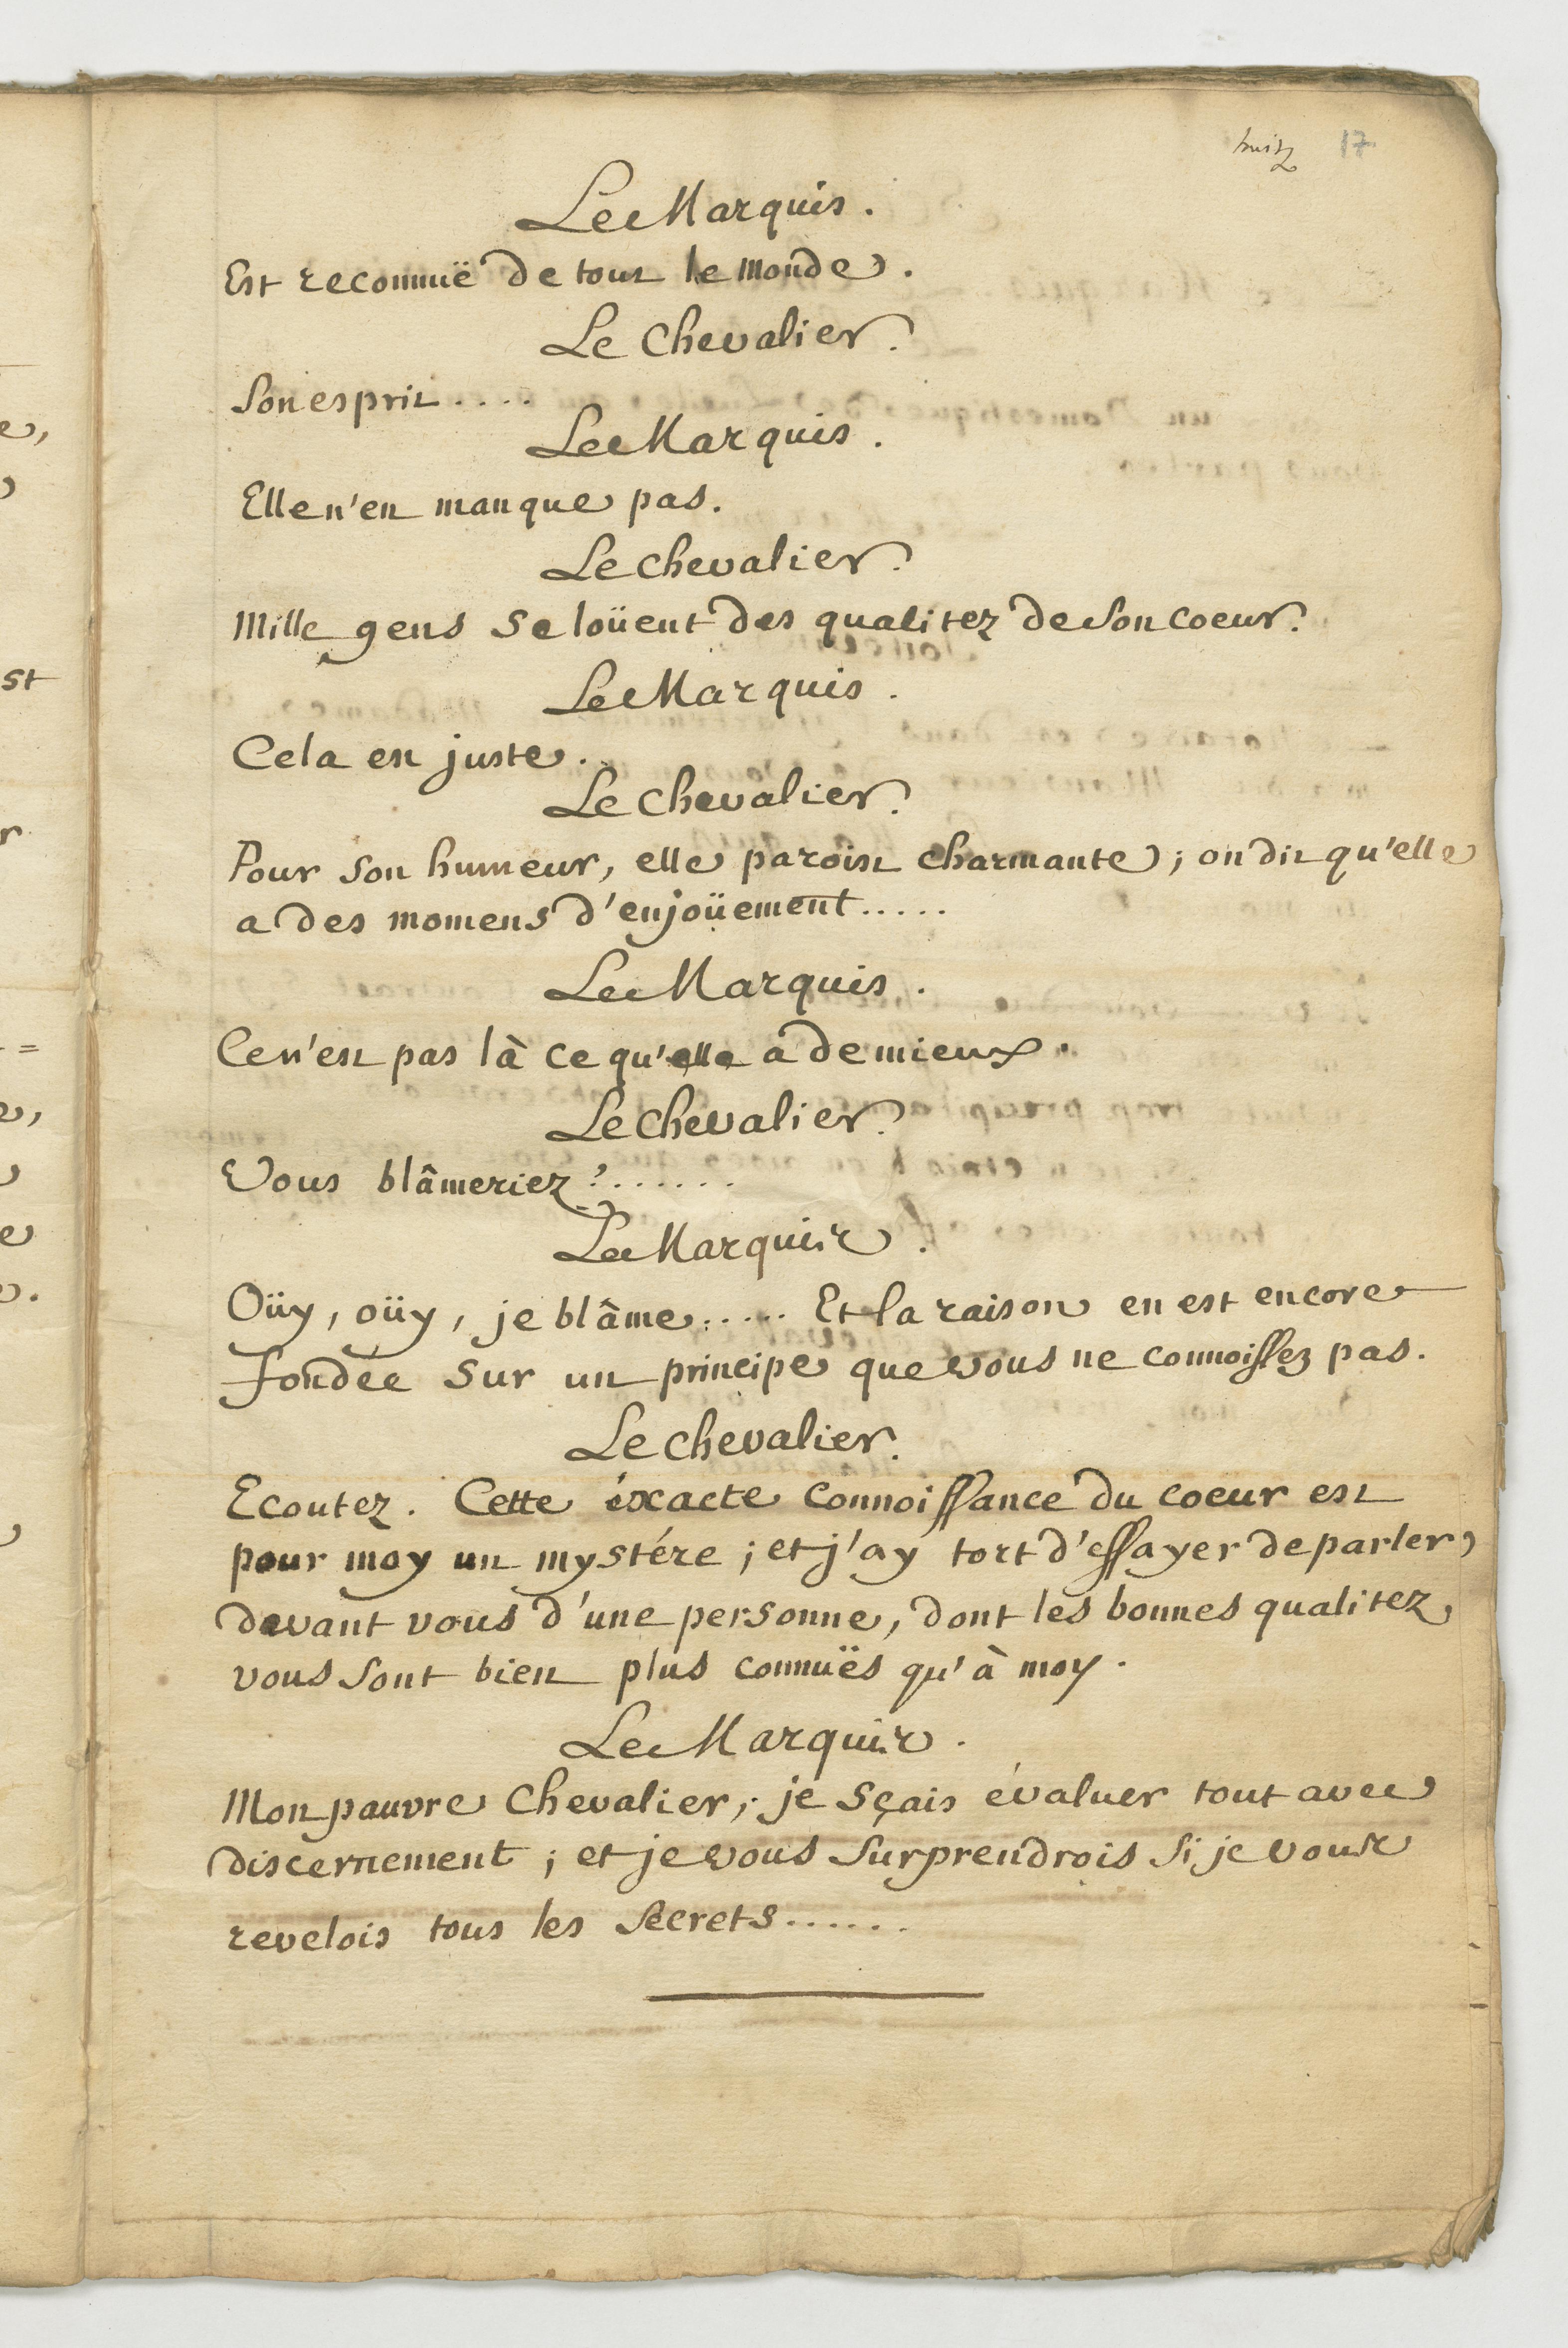 huit 17
Le Marquis.
Est reconnuë de tout le monde.
Le Chevalier.
Son esprit....
Le Marquis.
Elle n'en manque pas.
Le Chevalier.
Mille gens se loüent des qualitez de son coeur.
Le Marquis.
Cela est juste.
Le Chevalier.
Pour son humeur, elle paroist charmante; on dit qu'elle
a des momens d'enjoüement.....
Le Marquis.
Ce n'est pas là ce qu'elle a de mieux.
Le Chevalier.
Vous blâmeriez?......
Le Marquis.
Oüy, oüy, je blâme..... Et la raison en est encore
fondée sur un principe que vous ne connoissez pas.
Le Chevalier.
Ecoutez. Cette éxacte connoissance du coeur est
pour moy un mystére; et j'ay tort d'essayer de parler,
devant vous d'une personne, dont les bonnes qualitez
vous sont bien plus connuës qu'à moy.
Le Marquis.
Mon pauvre Chevalier, je sçais évaluer tout avec
discernement; et je vous surprendrois si je vous
revelois tous les secrets......